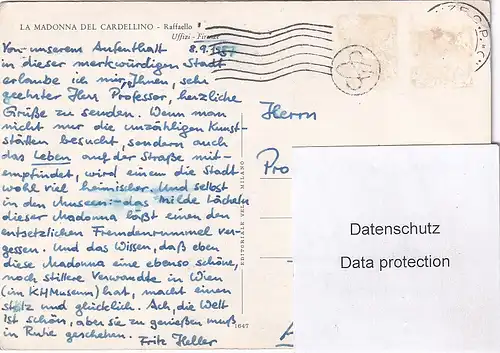 LA MADONNA DEL CARDELLINO - Raffaello
Uffizi - Firenze
8.9.1957
Von unserem Aufenthalt
in dieser merkwürdigen Stadt
erlaube ich mir, Ihnen, sehr
geehrter Herr Professor, herzliche
Grüße zu senden. Wenn man
nicht nur die unzähligen Kunst-
stätten besucht, sondern auch
das Leben auf der Straße mit-
empfindet, wird einem die Stadt
wohl viel heimischer. Und selbst
in den Museen: das milde Lächeln
dieser Madonna läßt einen den
entsetzlichen Fremdenrummel ver-
gessen. Und das Wissen, daß eben
diese Madonna eine ebenso schöne,
noch stillere Verwandte in Wien
(im KHMuseum) hat, macht einen
stolz und glücklich. Ach, die Welt
ist schön, aber sie zu genießen muß
in Ruhe geschehen.
Fritz Heller
1647
Herrn
Pro
Datenschutz
Data protection